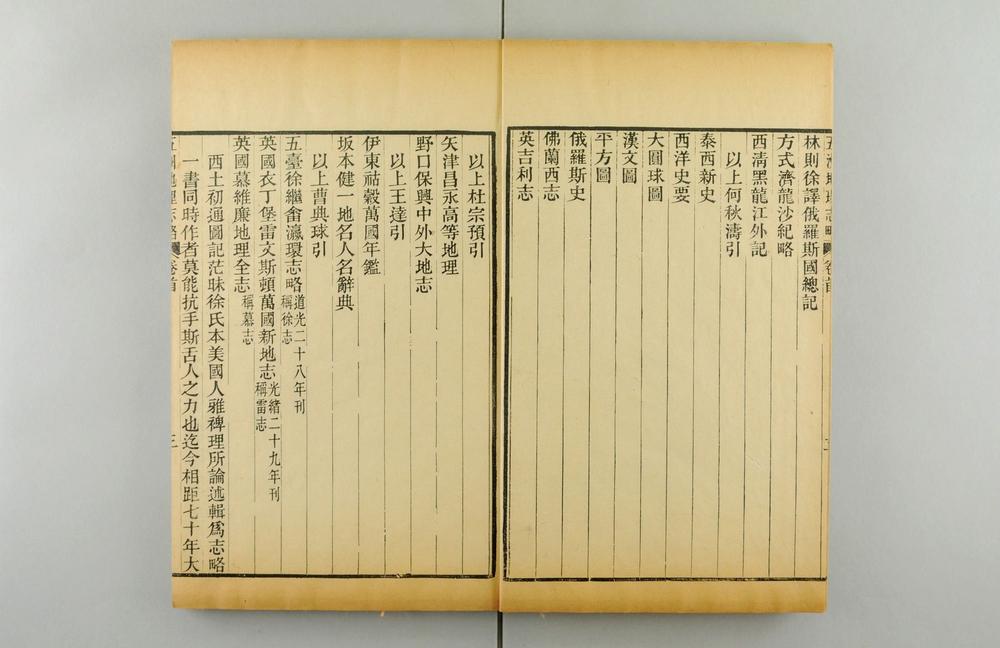 五洲地理志略 卷首
林則徐譯俄羅斯國總記
方式濟龍沙紀略
西淸黑龍江外記
以上何秋濤引
泰西新史
西洋史要
大圓球圖
漢文圖
平方圖
俄羅斯史
佛蘭西志
英吉利志
以上杜宗預引
矢津昌永高等地理
野口保興中外大地志
以上王達引
伊東祜穀萬國年鑑
坂本健一地名人名辭典
以上曹典球引
五臺徐繼畬瀛環志略道光二十八年刊稱徐志
英國衣丁堡雷文斯頓萬國新地志光緒二十九年刊稱雷志
英國慕維廉地理全志稱慕志
西土初通圖記茫昧徐氏本美國人雅裨理所論述輯爲志略
一書同時作者莫能抗手斯舌人之力也迄今相距七十年大
五洲地理志略 卷首 三